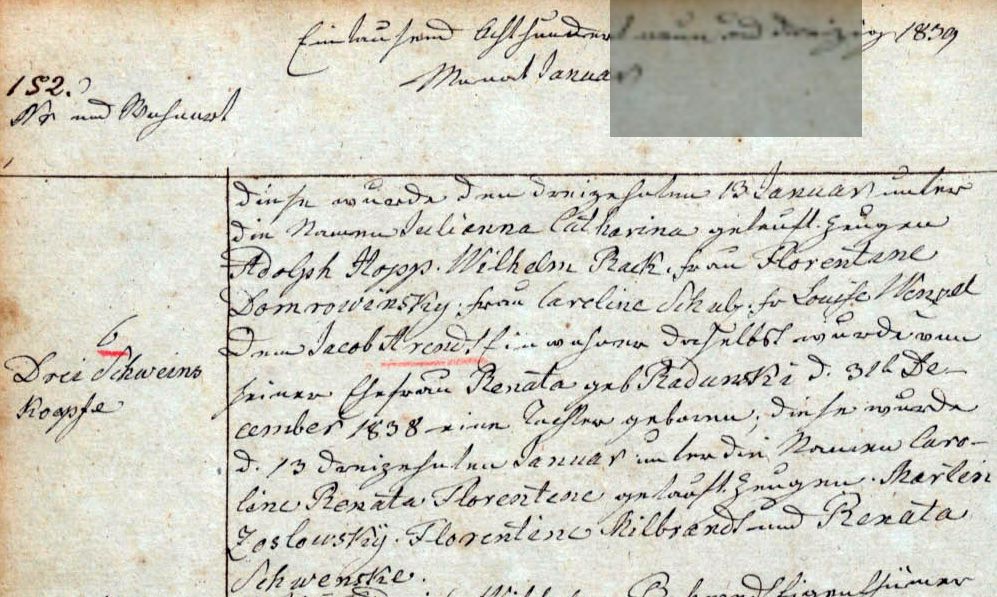 Eintausend Achthundert neun und dreizig 1839
Monat Januar
152.
No und Wohnort
diese wurde den dreizehnten 13 Januar unter
die Namen Julianna Catharina getauft. Zeugen
Adolph Hopp. Wilhelm Rack. frau Florentine
Domrowinsky. frau Careline Schulz. fr Louise Wenzel
6
Dem Jacob Arendt Einwohner daselbst wurde von
Drei Schweins
seiner Ehefrau Renata geb Radunski d. 31t De-
Koepfe
cember 1838 eine Tochter geboren, diese wurde
d. 13 dreizehnten Januar unter die Namen Caro-
line Renata Florentine getauft. Zeugen. Martin
Zoslowsky. Florentine Milbrandt und Renata
Schwenske.
Wilhelm Eigenthümer